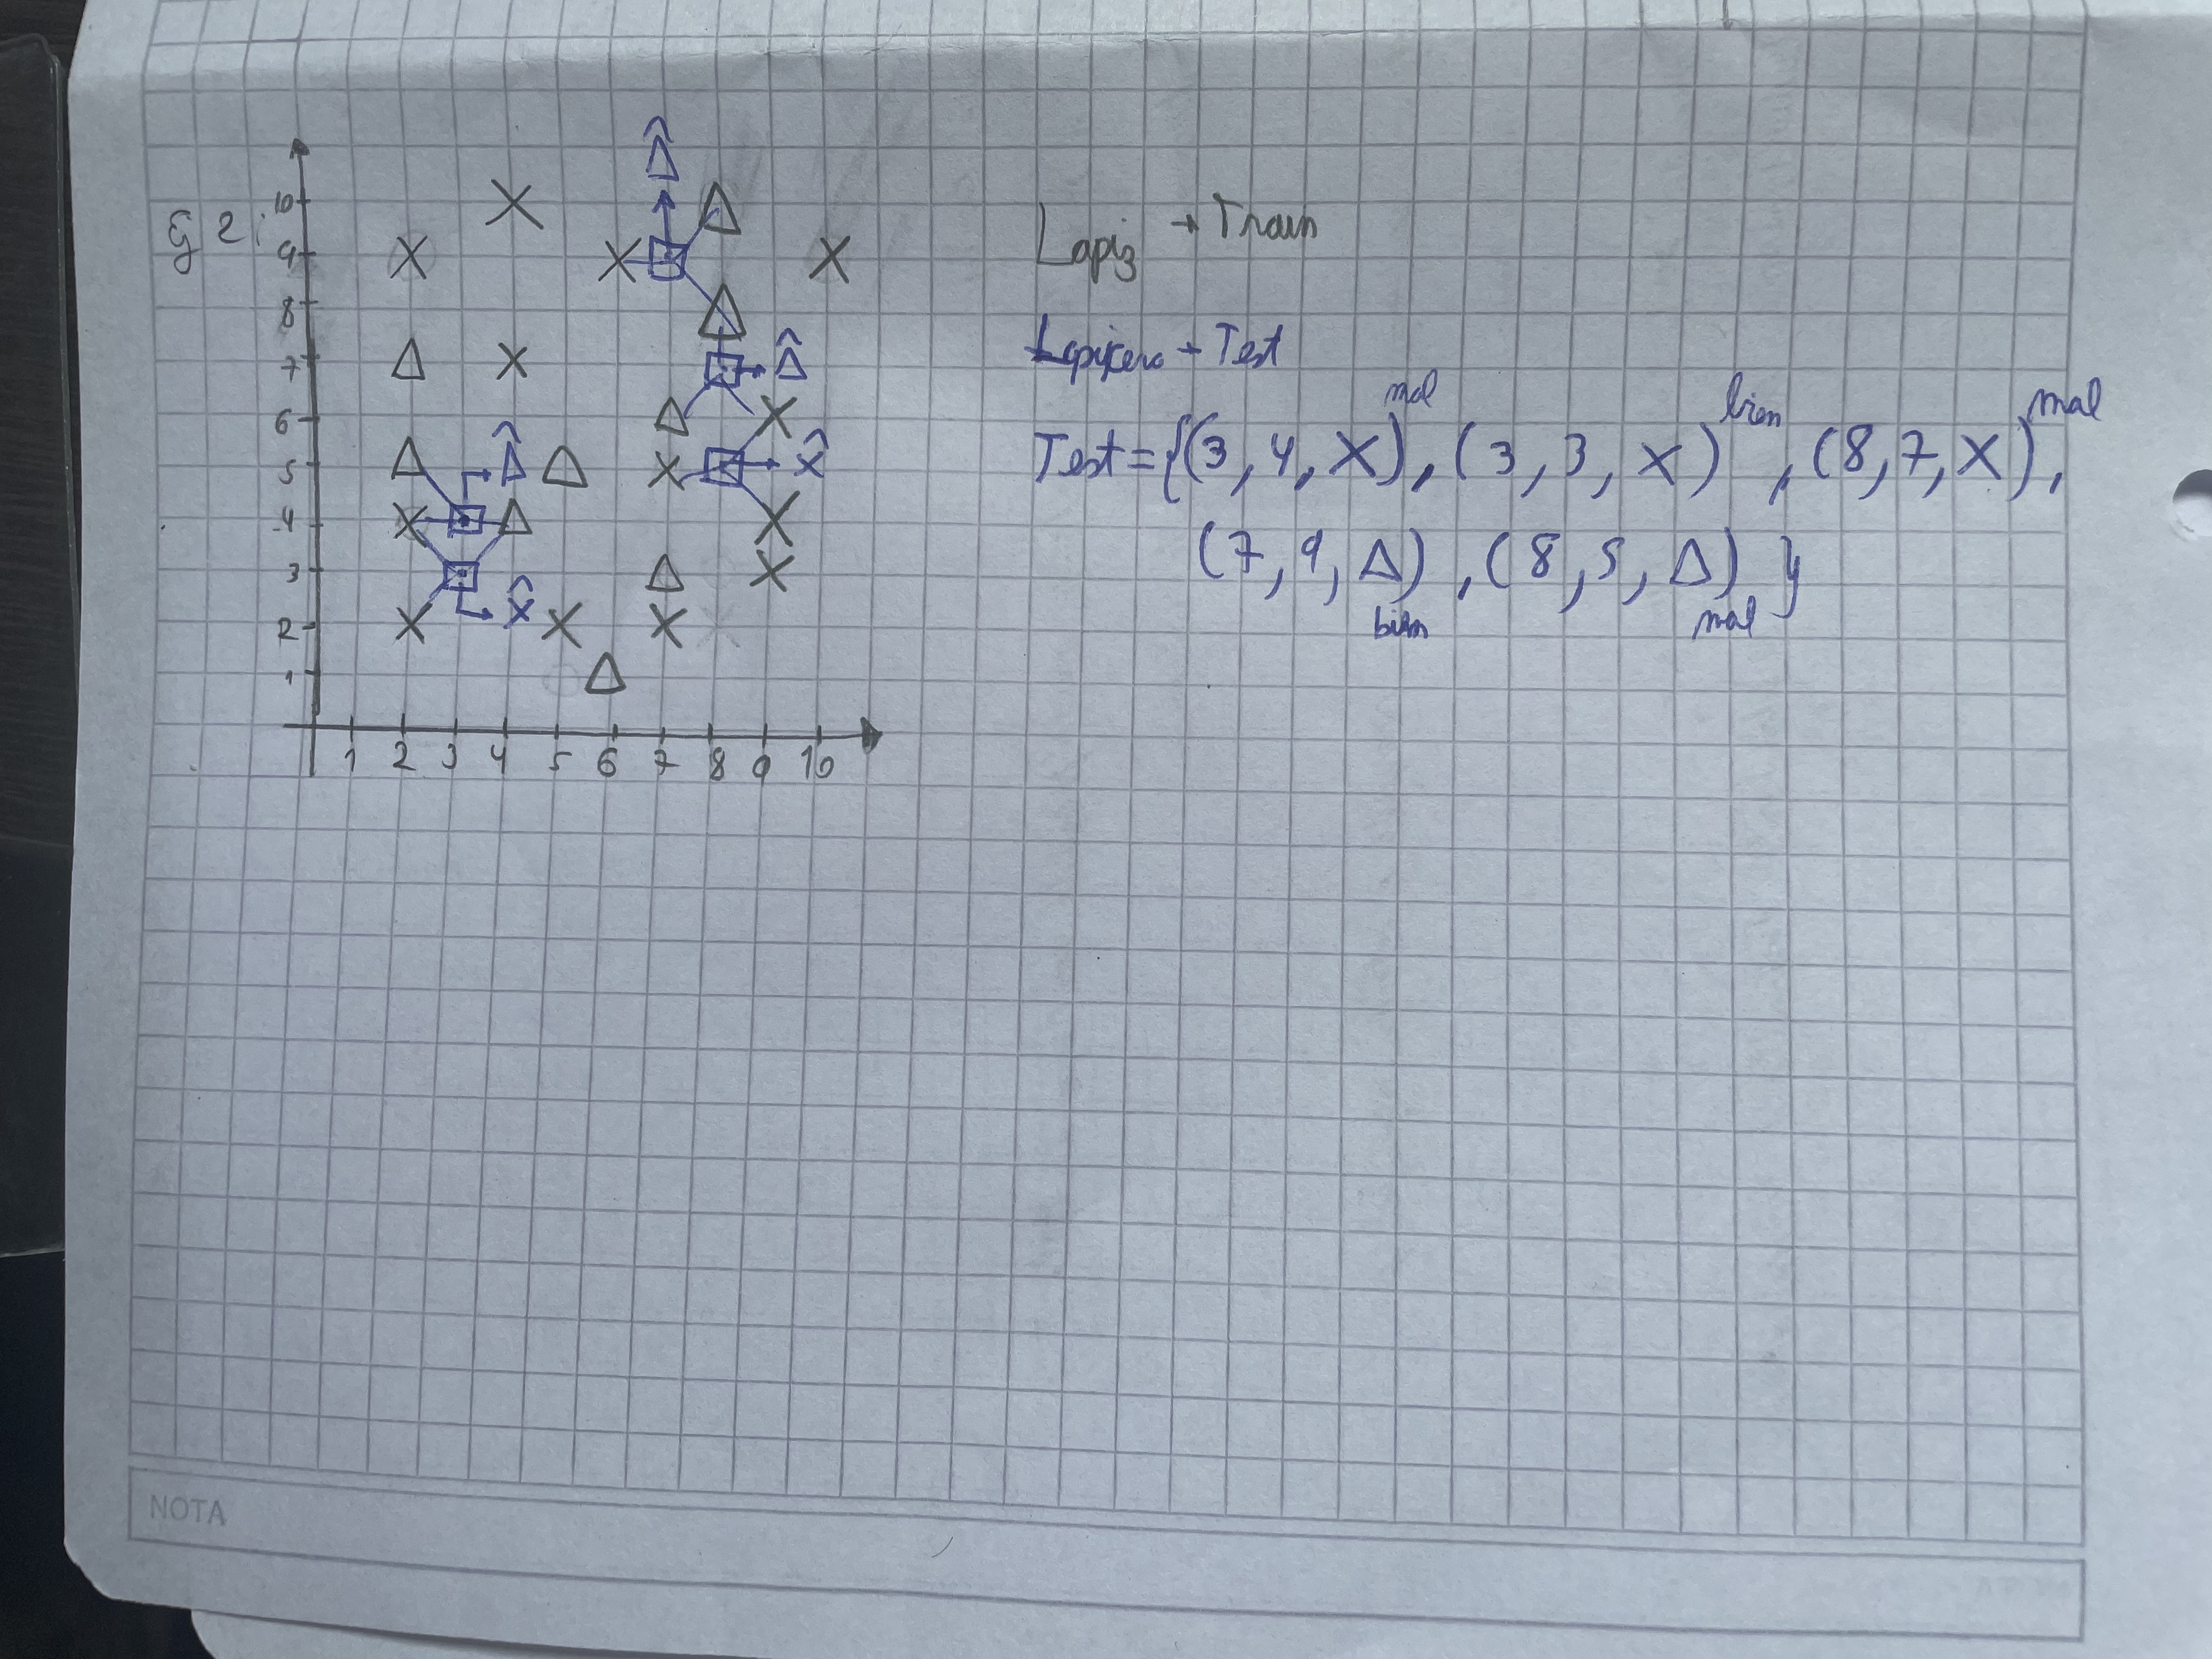 Ej 2:
10
9
8
7
6
5
4
3
2
1
1 2 3 4 5 6 7 8 9 10
Δ̂
Δ̂
Δ̂
x̂
x̂
Lapiz → Train
Lapicero → Test
Test = {(3, 4, X) mal, (3, 3, X) bien, (8, 7, X) mal,
(7, 9, Δ) bien, (8, 5, Δ) mal }
NOTA